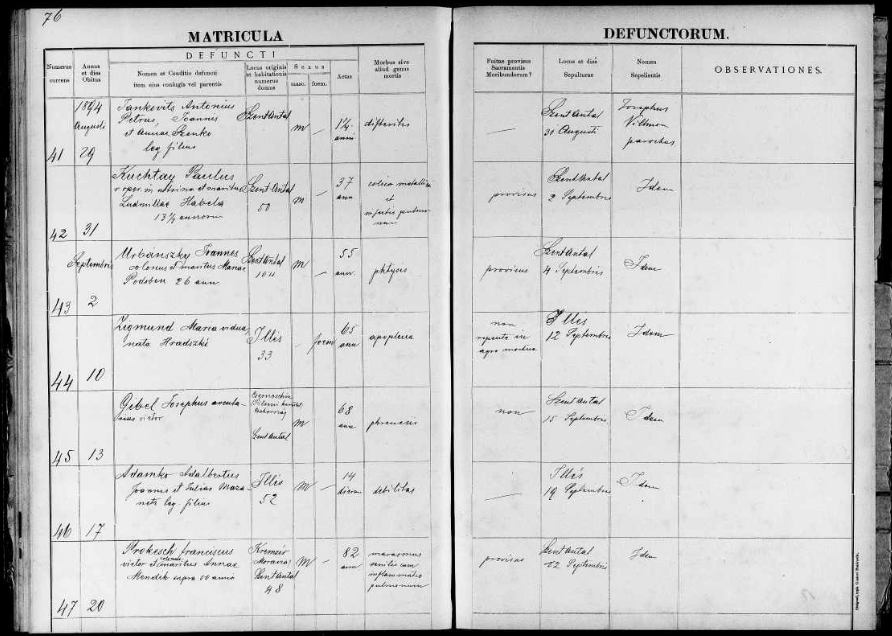 76
MATRICULA
DEFUNCTORUM.
Numerus currens
Annus et dies Obitus
DEFUNCTI
Nomen et Conditio defuncti
item ejus conjugis vel parentis
Locus originis et habitationis numerus domus
Sexus
masc.
foem.
Aetas
Morbus sive aliud genus mortis
Fuitne provisus Sacramentis Moribundorum?
Locus et dies Sepulturae
Nomen Sepelientis
OBSERVATIONES.
41
1894
Augusti
29
Jankovits Antonius
Petrus, Joannis
et Annae Szenko
leg filius
Szent Antal
m
—
1½
anni
difteritis
—
Szent Antal
30 Augusti
Josephus
Villman
parochus
42
31
Kuchtay Paulus
maritus
Ludmillae Habela
13 ½ annorum
Szent Antal
50
m
—
37
ann
colica
et
provisus
Szent Antal
2 Septembris
Idem
43
Septembris
2
Urbánszky Joannes
colonus et maritus Mariae
26 ann
Szent Antal
m
—
55
ann.
phtysis
provisus
Szent Antal
4 Septembris
Idem
44
10
Zigmund Maria vidua
nata Hradszki
Illés
33
foem
65
ann
apoplexia
non
repente in
agro mortua
Illés
12 Septembris
Idem
45
13
Gebel Josephus
Szent Antal
m
68
ann
non
Szent Antal
15 Septembris
Idem
46
17
Adamko Adalbertus
Joannis et Juliae
leg. filius
Illés
52
m
—
14
dierum
debilitas
—
Illés
19 Septembris
Idem
47
20
Prokesch Franciscus
maritus Annae
Szent Antal
48
m
—
82
ann
marasmus
senilis cum
inflammatio
provisus
Szent Antal
22 Septembris
Idem